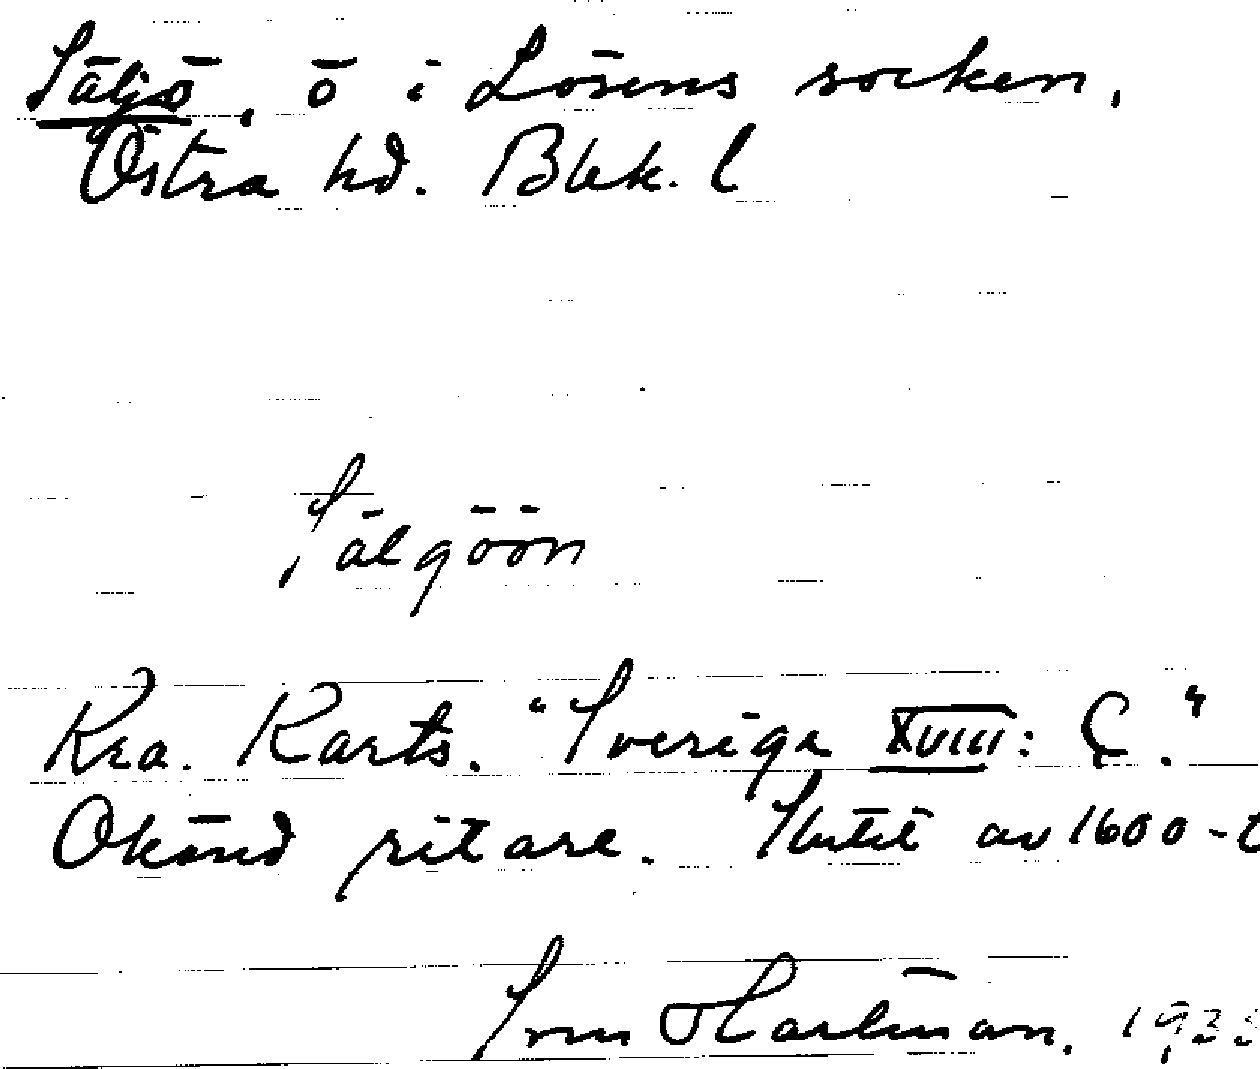 Säljö, ö i Lösens socken,
Östra hd. Blek. l
Sälgöön
Kra. Karts. "Sverige XVIII: C."
Okänd ritare. Slutet av 1600-t
Sven Hartman. 193